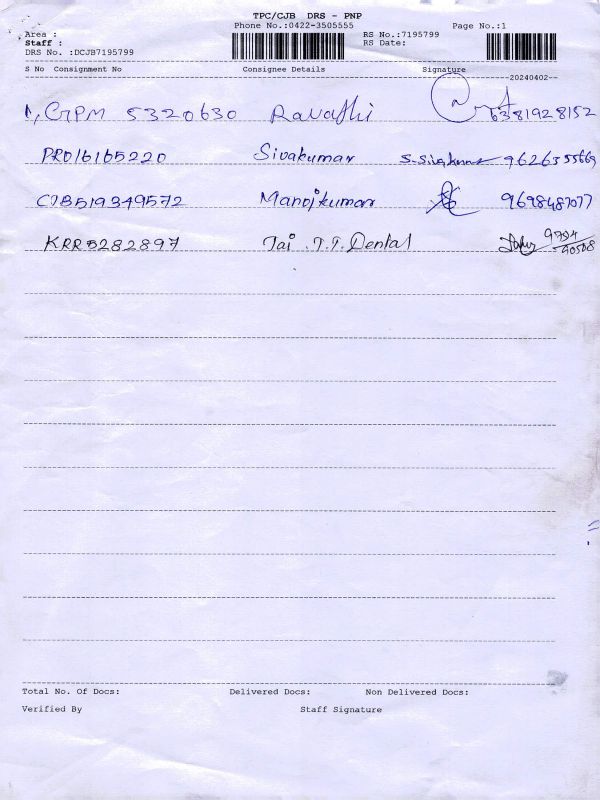 TPC/CJB DRS - PNP
Phone No.:0422-3505555 Page No.:1
Area : RS No.:7195799
Staff : RS Date:
DRS No. :DCJB7195799
S No Consignment No Consignee Details Signature
20240402
1, GPM 5320630 Ravathi 6381928152
PRD16165220 Sivakumar S.Sivakumar 9626355669
CJB519349572 Manojkumar 9698487077
KRR5282897 Jai .T.T. Dental
Total No. Of Docs: Delivered Docs: Non Delivered Docs:
Verified By Staff Signature